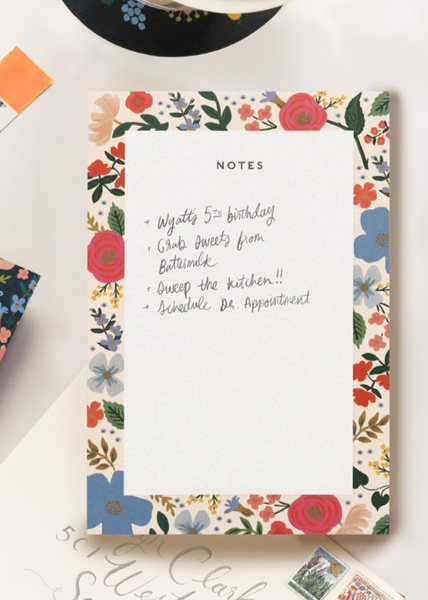 NOTES
+ Wyatt's 5TH birthday
+ Grab sweets from
Buttermilk
+ Sweep the kitchen!!
+ Schedule Dr. Appointment
Clark